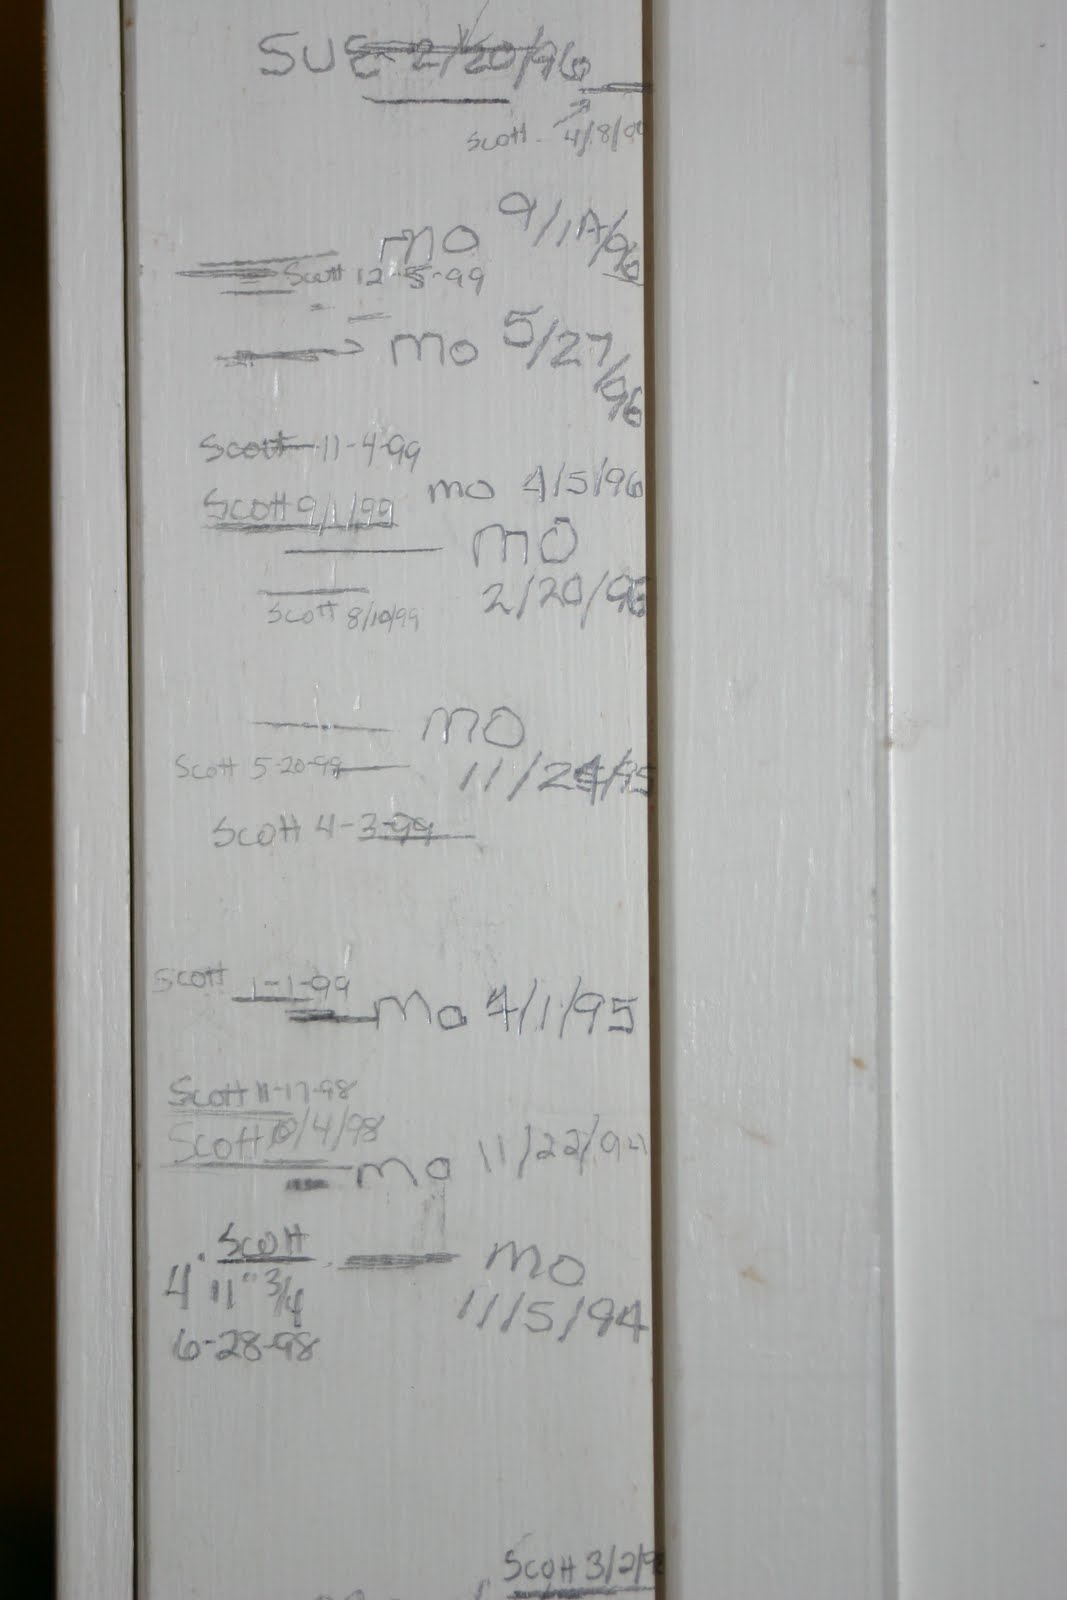 SUE 2/20/96
Scott 4/8/00
mo 9/17/96
Scott 12-5-99
mo 5/27/96
Scott 11-4-99
mo 4/5/96
Scott 9/1/99
mo
2/20/96
Scott 8/10/99
mo
Scott 5-20-99
11/24/95
Scott 4-3-99
Scott 1-1-99
Mo 4/1/95
Scott 11-17-98
Scott 10/4/98
mo 11/22/94
Scott
4' 11" 3/4
6-28-98
mo
11/5/94
Scott 3/2/9